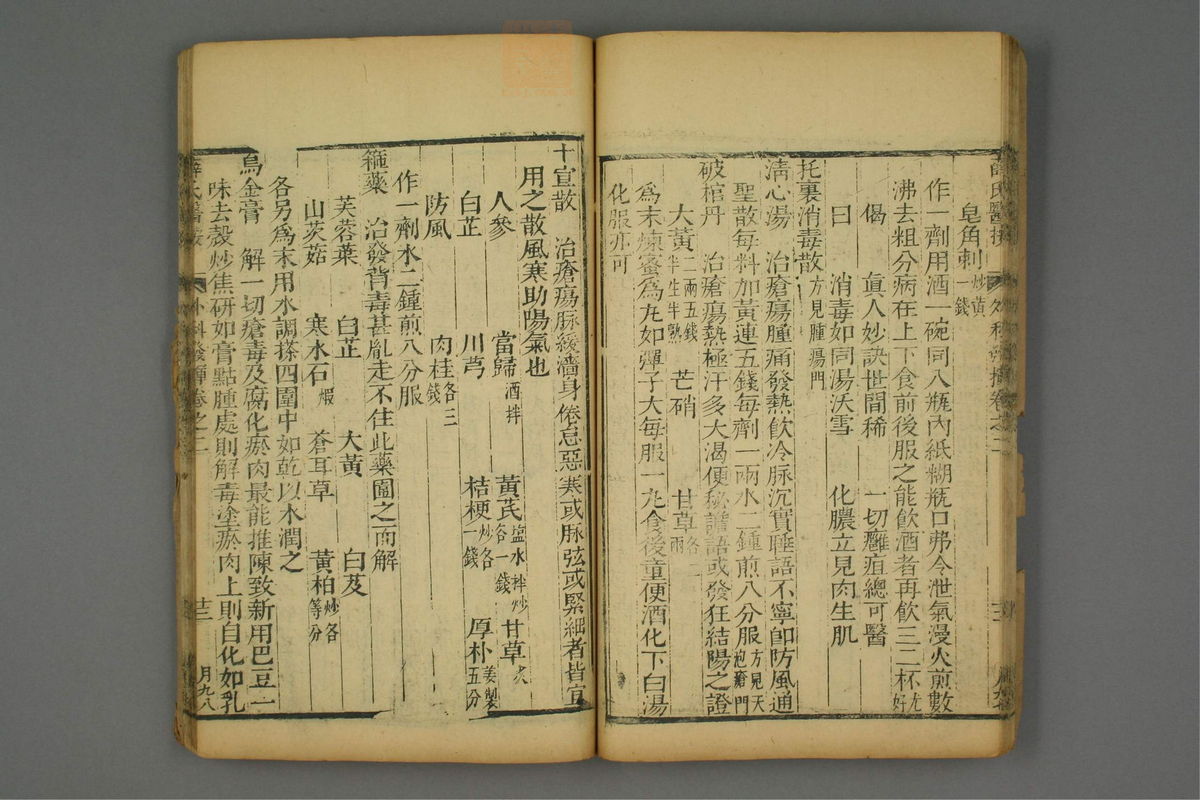 皂角刺炒黃一錢
作一劑用酒一碗同入瓶內紙糊瓶口弗令泄氣漫火煎數
沸去粗分病在上下食前後服之能飲酒者再飲三二杯尤好
偈 眞人妙訣世間稀 一切癰疽總可醫
曰 消毒如同湯沃雪 化膿立見肉生肌
托裏消毒散方見腫瘍門
淸心湯 治瘡瘍腫痛發熱飲冷脉沉實睡語不寧卽防風通
聖散每料加黃連五錢每劑一兩水二鍾煎八分服方見天疱瘡門
破棺丹 治瘡瘍熱極汗多大渴便秘譫語或發狂結陽之證
大黃二兩五錢半生半熟 芒硝 甘草各二兩
爲末煉蜜爲丸如彈子大每服一丸食後童便酒化下白湯
化服亦可
十宣散 治瘡瘍脉緩濇身倦忌惡寒或脉弦或緊細者皆宜
用之散風寒助陽氣也
人參 當歸酒拌 黃芪鹽水拌炒各一錢 甘草炙
白芷 川芎 桔梗炒各一錢 厚朴姜製五分
防風 肉桂各三錢
作一劑水二鍾煎八分服
箍藥 治發背毒甚亂走不住此藥圍之而解
芙蓉葉 白芷 大黃 白芨
山茨菇 寒水石煅 蒼耳草 黃柏炒各等分
各另爲末用水調搽四圍中如乾以水潤之
烏金膏 解一切瘡毒及腐化瘀肉最能推陳致新用巴豆一
味去殼炒焦研如膏點腫處則解毒塗瘀肉上則自化如乳
薛氏醫按 外科發揮卷之二 十三 月九八